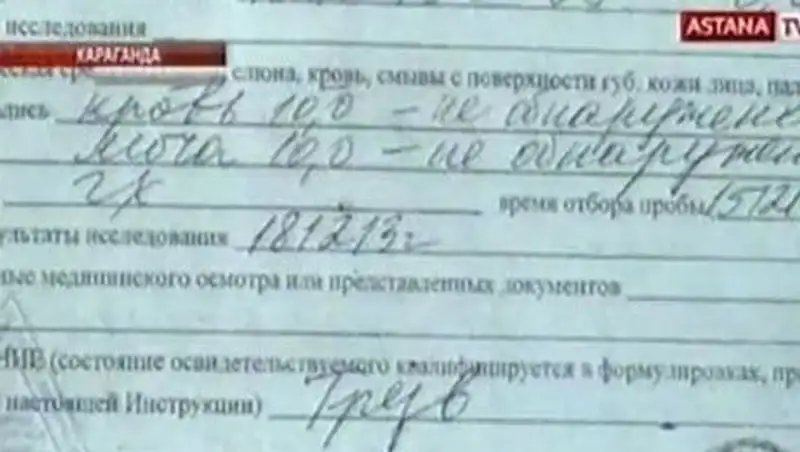 ASTANA TV
исследования
КАРАГАНДА
слюна, кровь, смывы с поверхности губ, кожи лица, пал
кровь 10,0 – не обнаружено
моча 10,0 – не обнаружен
гх
время отбора пробы 1512
ультаты исследования 181213г
ные медицинского осмотра или представленных документов
НИЕ (состояние освидетельствуемого квалифицируется в формулировках, пр
настоящей Инструкции) Трезв